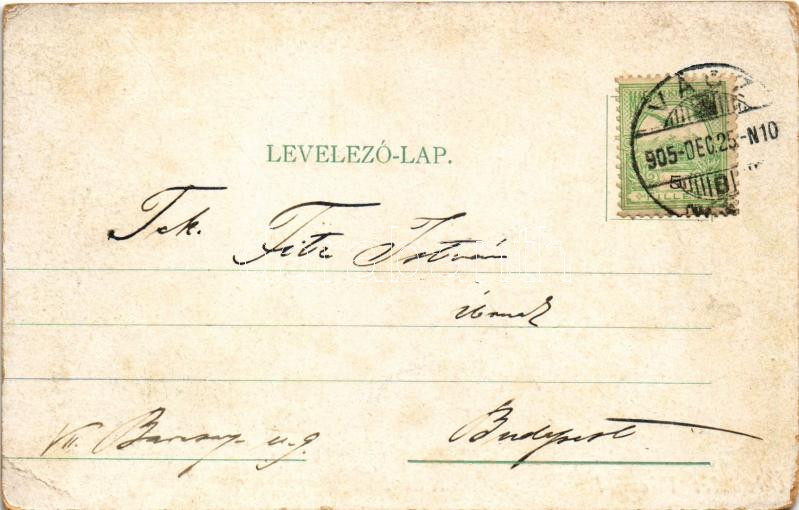 VÁCZ
905-DEC.25-N10
B
5
LEVELEZŐ-LAP.
Tek. Fitz István
úrnak
VII. Barcsay-u. 9.
Budapest